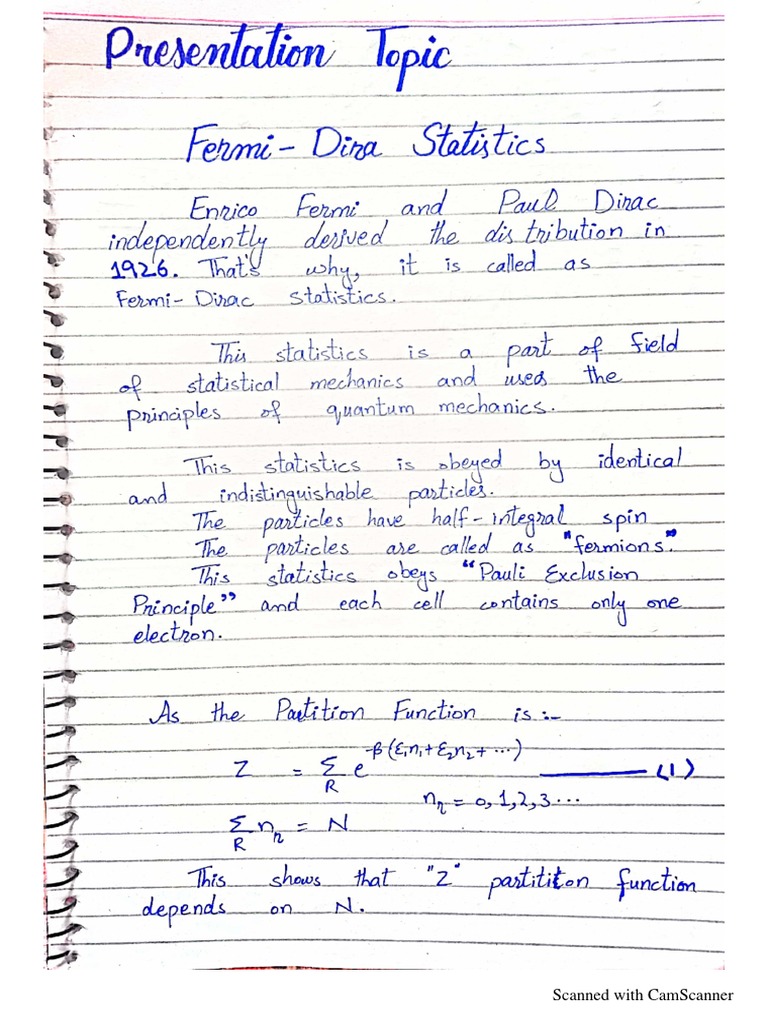 Presentation Topic
Fermi-Dira Statistics
Enrico Fermi and Paul Dirac
independently derived the distribution in
1926. That's why, it is called as
Fermi-Dirac statistics.
This statistics is a part of field
of statistical mechanics and uses the
principles of quantum mechanics.
This statistics is obeyed by identical
and indistinguishable particles.
The particles have half-integral spin
The particles are called as "fermions."
This statistics obeys "Pauli Exclusion
Principle" and each cell contains only one
electron.
As the Partition Function is:-
Z = Σ_R e^{-β(ε₁n₁+ε₂n₂+...)} —— (1)
n_r = 0,1,2,3...
Σ_R n_r = N
This shows that "Z" partititon function
depends on N.
Scanned with CamScanner